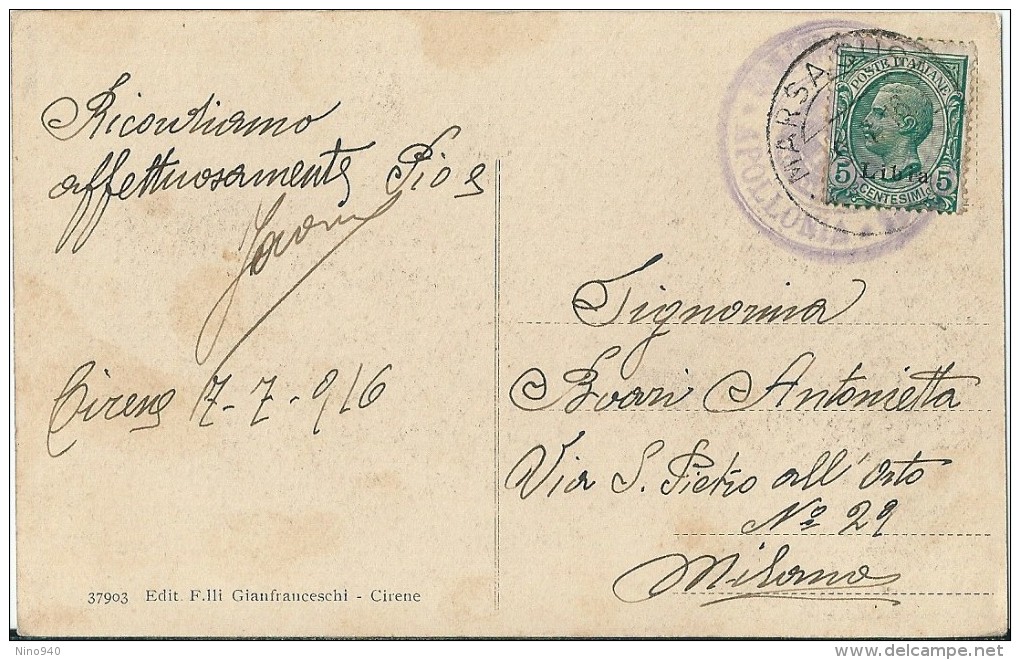 Ricordiamo
affettuosamente Pio e
Cirene 17-7-916
37903 Edit. F.lli Gianfranceschi - Cirene
MARSA
APOLLONIA
POSTE ITALIANE
Libia
5 CENTESIMI 5
Signorina
Boari Antonietta
Via S. Pietro all'Orto
Nº 29
Milano
Nino940
delcampe.net